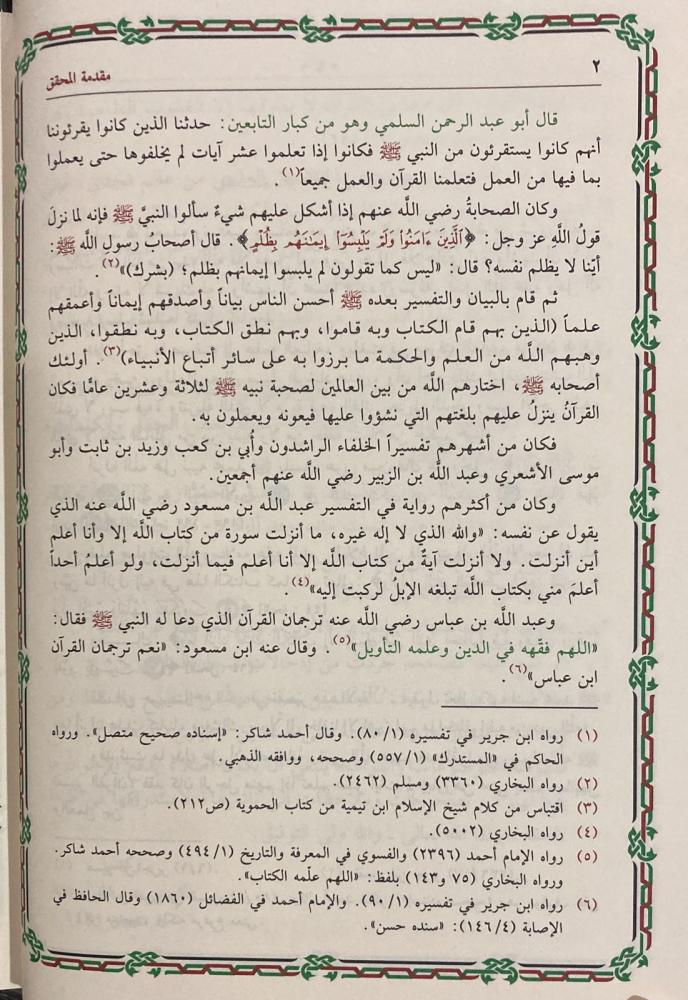 ٢
مقدمة المحقق
قال أبو عبد الرحمن السلمي وهو من كبار التابعين: حدثنا الذين كانوا يقرئوننا
أنهم كانوا يستقرئون من النبي ﷺ فكانوا إذا تعلموا عشر آيات لم يخلفوها حتى يعملوا
بما فيها من العمل فتعلمنا القرآن والعمل جميعاً(١).
وكان الصحابةُ رضي اللَّه عنهم إذا أشكل عليهم شيءٌ سألوا النبيَّ ﷺ فإنه لما نزلَ
قولُ اللَّهِ عز وجل: ﴿ٱلَّذِينَ ءَامَنُوا۟ وَلَمْ يَلْبِسُوٓا۟ إِيمَـٰنَهُم بِظُلْمٍ﴾. قال أصحابُ رسولِ اللَّه ﷺ:
أيّنا لا يظلم نفسه؟ قال: «ليس كما تقولون لم يلبسوا إيمانهم بظلم؛ (بشرك)»(٢).
ثم قام بالبيان والتفسير بعده ﷺ أحسن الناس بياناً وأصدقهم إيماناً وأعمقهم
علماً (الذين بهم قام الكتاب وبه قاموا، وبهم نطق الكتاب، وبه نطقوا، الذين
وهبهم اللَّه من العلم والحكمة ما برزوا به على سائر أتباع الأنبياء)(٣). أولئك
أصحابه ﷺ، اختارهم اللَّه من بين العالمين لصحبة نبيه ﷺ لثلاثة وعشرين عامًا فكان
القرآنُ ينزلُ عليهم بلغتهم التي نشؤوا عليها فيعونه ويعملون به.
فكان من أشهرهم تفسيراً الخلفاء الراشدون وأُبي بن كعب وزيد بن ثابت وأبو
موسى الأشعري وعبد اللَّه بن الزبير رضي اللَّه عنهم أجمعين.
وكان من أكثرهم رواية في التفسير عبد اللَّه بن مسعود رضي اللَّه عنه الذي
يقول عن نفسه: «واللَّه الذي لا إله غيره، ما أنزلت سورة من كتاب اللَّه إلا وأنا أعلم
أين أنزلت. ولا أنزلت آيةٌ من كتاب اللَّه إلا أنا أعلم فيما أنزلت، ولو أعلمُ أحداً
أعلمَ مني بكتاب اللَّه تبلغه الإبلُ لركبت إليه»(٤).
وعبد اللَّه بن عباس رضي اللَّه عنه ترجمان القرآن الذي دعا له النبي ﷺ فقال:
«اللهم فقّهه في الدين وعلمه التأويل»(٥). وقال عنه ابن مسعود: «نعم ترجمان القرآن
ابن عباس»(٦).
(١) رواه ابن جرير في تفسيره (٨٠/١). وقال أحمد شاكر: «إسناده صحيح متصل». ورواه
الحاكم في «المستدرك» (٥٥٧/١) وصححه، ووافقه الذهبي.
(٢) رواه البخاري (٣٣٦٠) ومسلم (٢٤٦٢).
(٣) اقتباس من كلام شيخ الإسلام ابن تيمية من كتاب الحموية (ص٢١٢).
(٤) رواه البخاري (٥٠٠٢).
(٥) رواه الإمام أحمد (٢٣٩٦) والفسوي في المعرفة والتاريخ (٤٩٤/١) وصححه أحمد شاكر.
ورواه البخاري (٧٥ و١٤٣) بلفظ: «اللهم علّمه الكتاب».
(٦) رواه ابن جرير في تفسيره (٩٠/١). والإمام أحمد في الفضائل (١٨٦٠) وقال الحافظ في
الإصابة (١٤٦/٤): «سنده حسن».